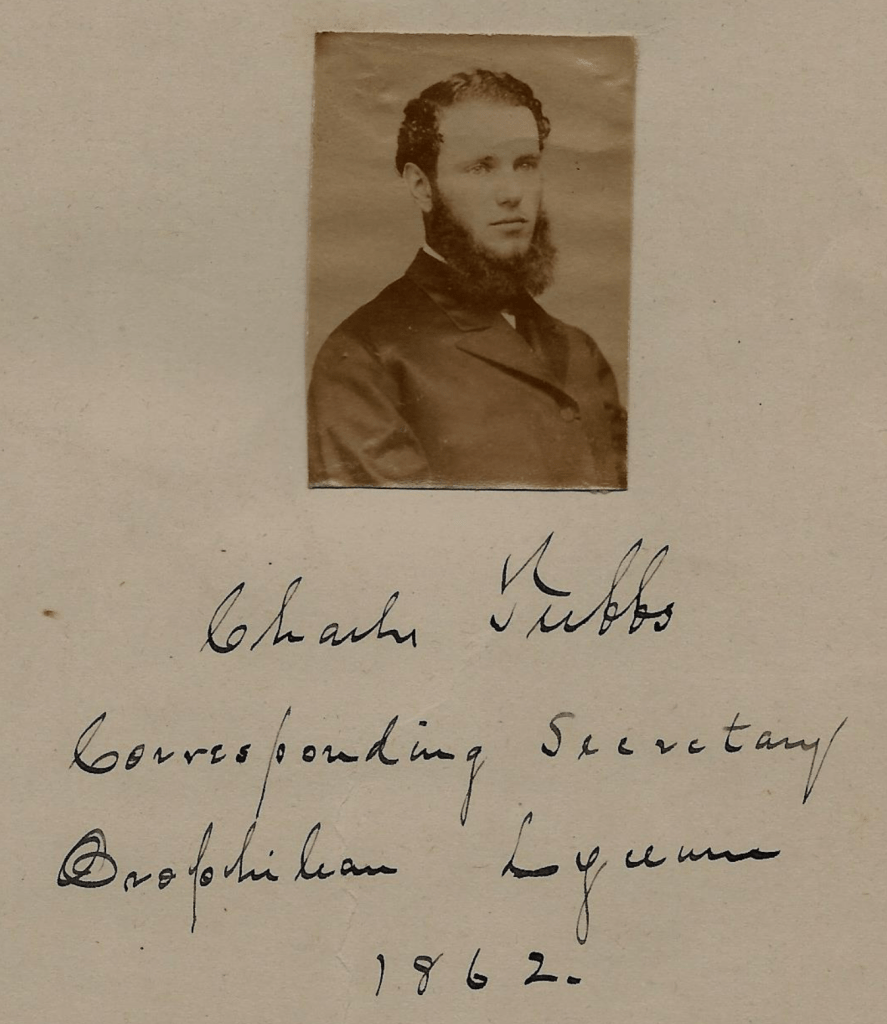 Charles Tubbs
Corresponding Secretary
Orophilian Lyceum
1862.